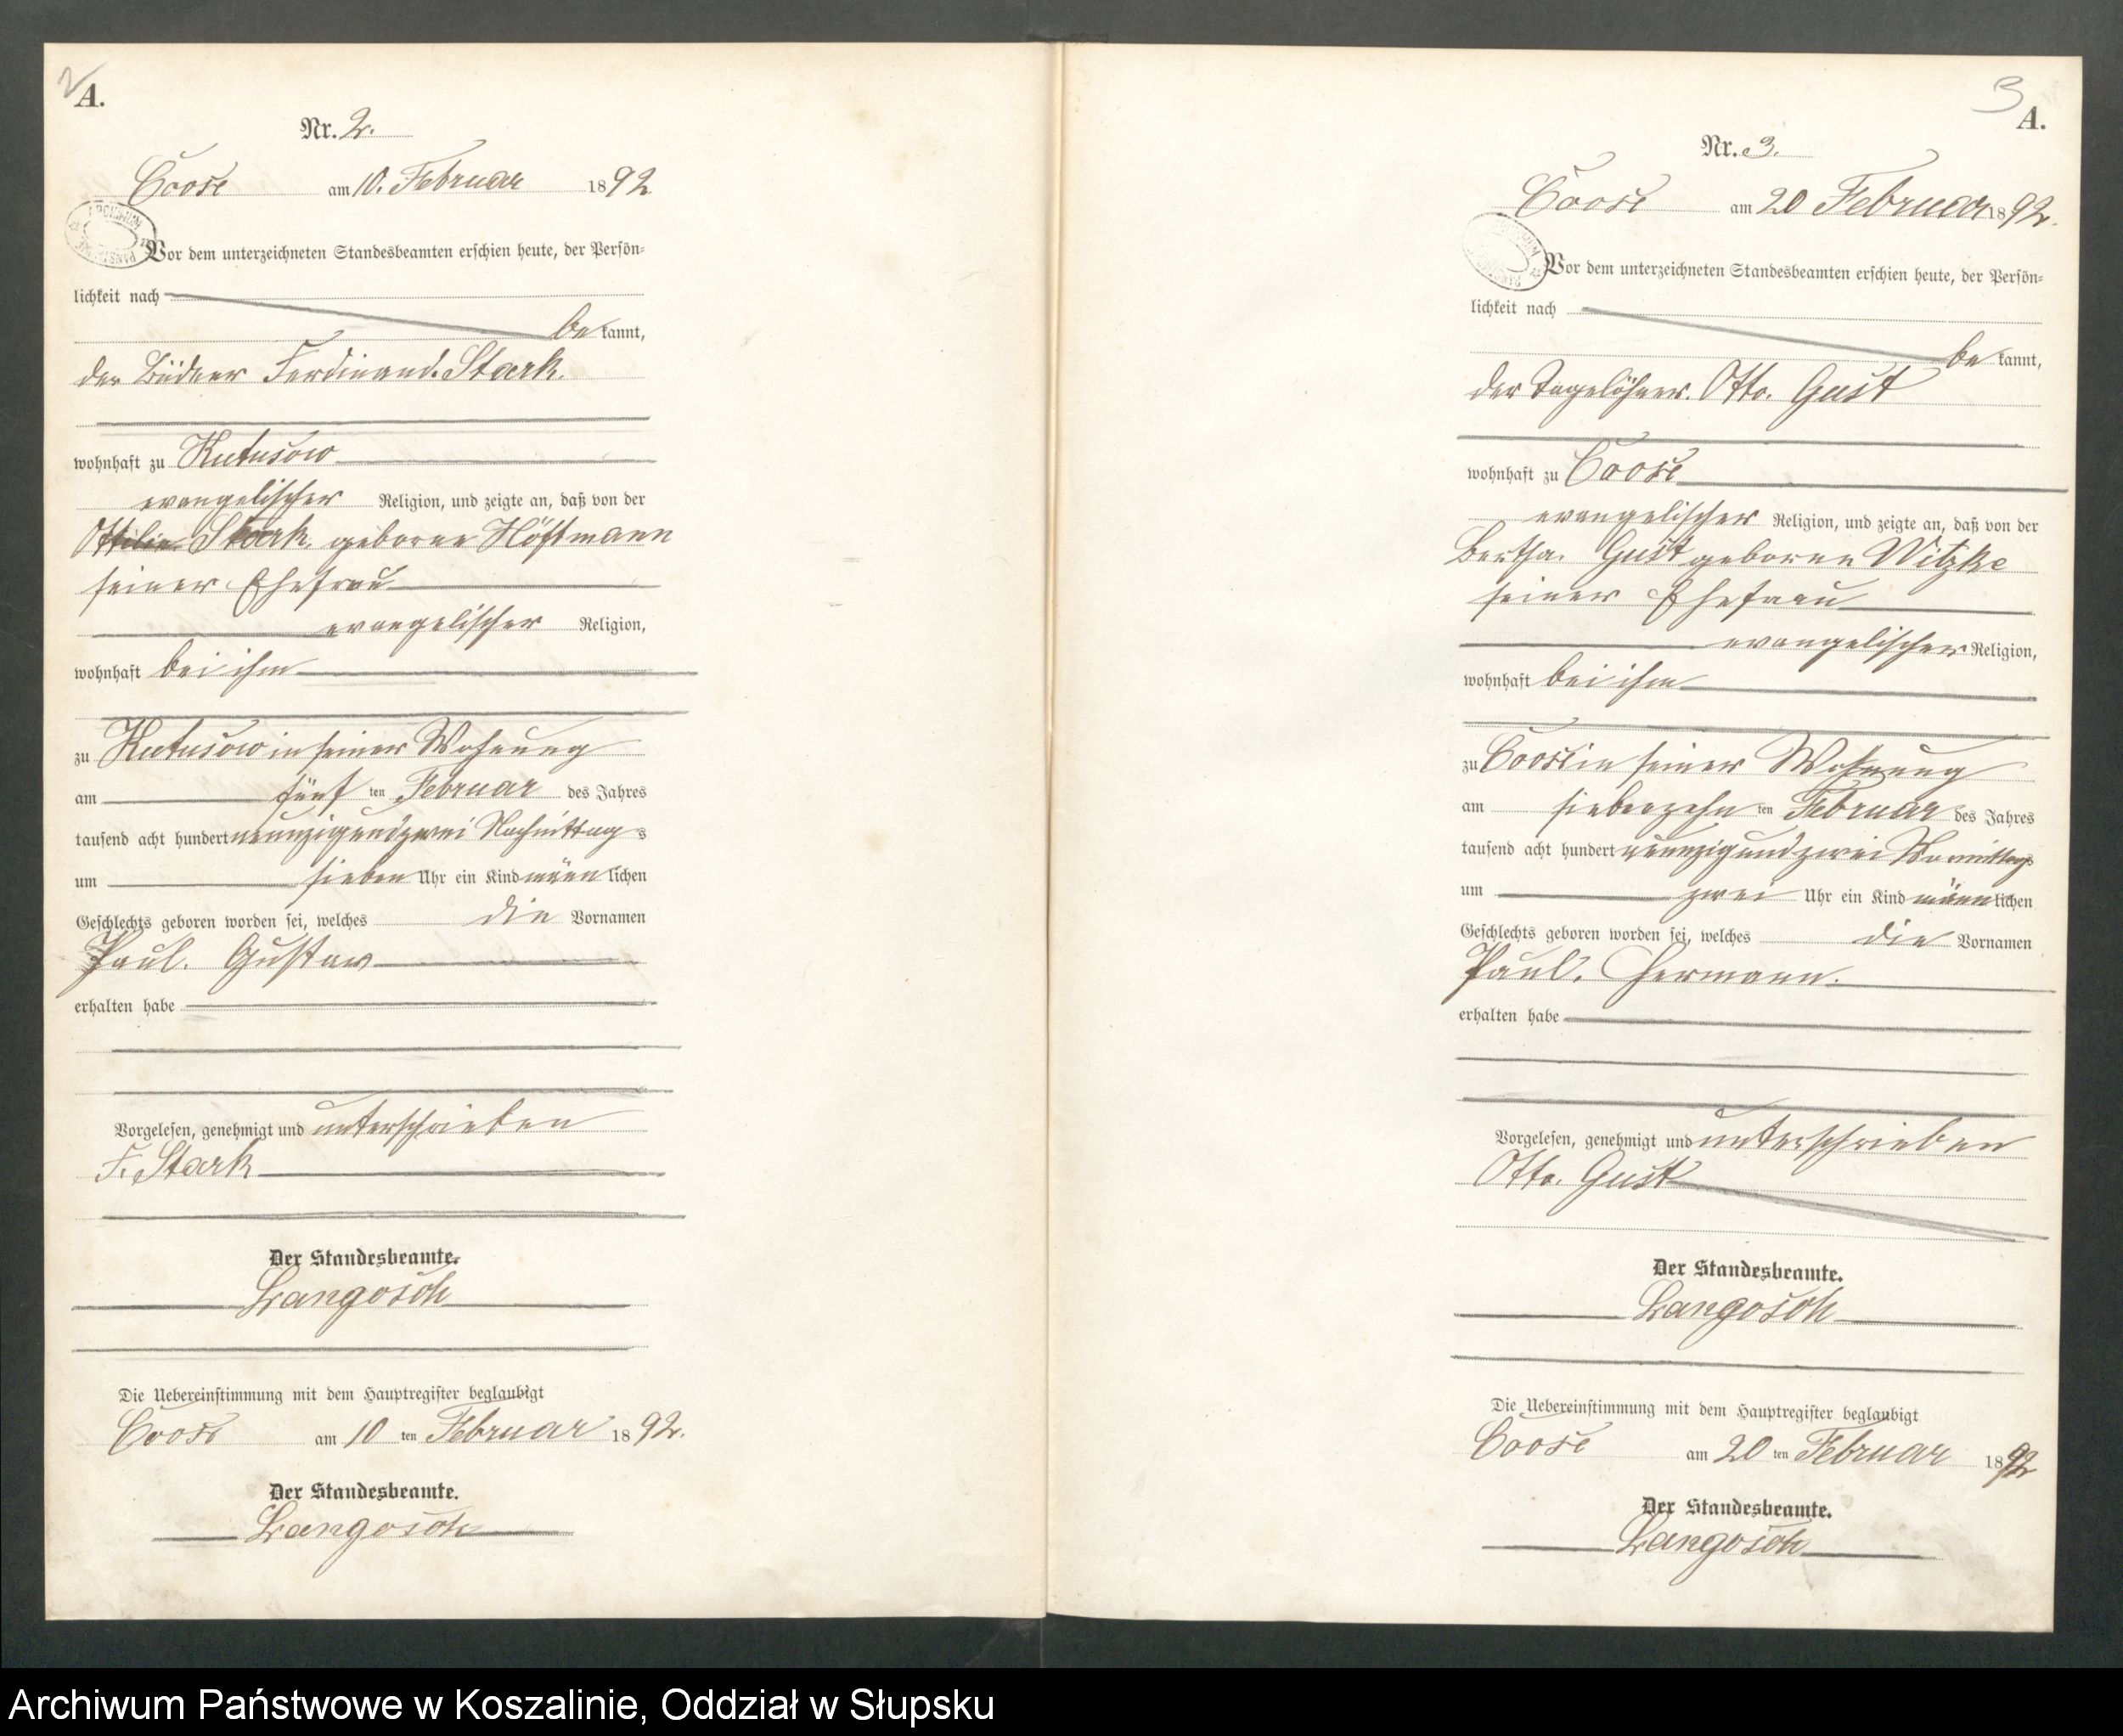 2
A.
Nr. 2.
Coose am 10. Februar 1892
Vor dem unterzeichneten Standesbeamten erschien heute, der Persön-
lichkeit nach
be kannt,
der Büdner Ferdinand Stark.
wohnhaft zu Kutusow
evangelischer Religion, und zeigte an, daß von der
Ottilie Stark geborne Höftmann
seiner Ehefrau
evangelischer Religion,
wohnhaft bei ihm
zu Kutusow in seiner Wohnung
am fünf ten Februar des Jahres
tausend acht hundert neunzig und zwei Nachmittags
um sieben Uhr ein Kind männ lichen
Geschlechts geboren worden sei, welches die Vornamen
Paul. Gustav
erhalten habe
Vorgelesen, genehmigt und unterschrieben
F. Stark
Der Standesbeamte.
Langosch
Die Uebereinstimmung mit dem Hauptregister beglaubigt
Coose am 10 ten Februar 1892.
Der Standesbeamte.
Langosch
3
A.
Nr. 3.
Coose am 20 Februar 1892.
Vor dem unterzeichneten Standesbeamten erschien heute, der Persön-
lichkeit nach
be kannt,
der Tagelöhner. Otto. Gust
wohnhaft zu Coose
evangelischer Religion, und zeigte an, daß von der
Bertha. Gust geborne Witzke
seiner Ehefrau
evangelischer Religion,
wohnhaft bei ihm
zu Coose in seiner Wohnung
am siebenzehn ten Februar des Jahres
tausend acht hundert neunzig und zwei Vormittags
um zwei Uhr ein Kind männ lichen
Geschlechts geboren worden sei, welches die Vornamen
Paul. Hermann.
erhalten habe
Vorgelesen, genehmigt und unterschrieben
Otto. Gust
Der Standesbeamte.
Langosch
Die Uebereinstimmung mit dem Hauptregister beglaubigt
Coose am 20 ten Februar 1892
Der Standesbeamte.
Langosch
Archiwum Państwowe w Koszalinie, Oddział w Słupsku